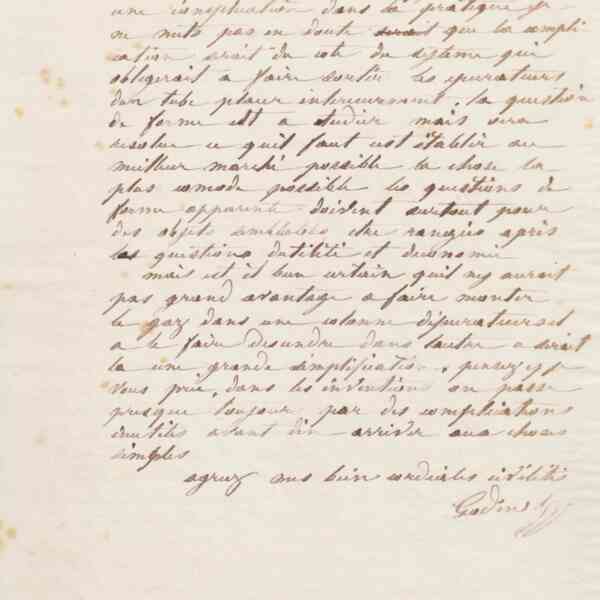 une complication dans la pratique je
ne mets pas en doute serait que la compli
cation serait du coté du systeme qui
obligerait a faire sortir les epurateurs
dun tube placer interieurement. la question
de forme est a etudier mais sera
resolue ce quil faut est établir au
meilleur marché possible la chose la
plus comode possible les questions de
forme apparente doivent surtout pour
des objets semblables etre rangées après
les questions dutilité et déconomie
mais est il bien certain quil ny aurait
pas grand avantage a faire monter
le gaz dans une colonne dépurateurs et
a le faire descendre dans lautre ce serait
la une grande simplification, pensez y je
vous prie, dans les inventions on passe
presque toujours par des complications
inutiles avant den arriver aux choses
simples
agreez mes bien cordiales civilités
Godin